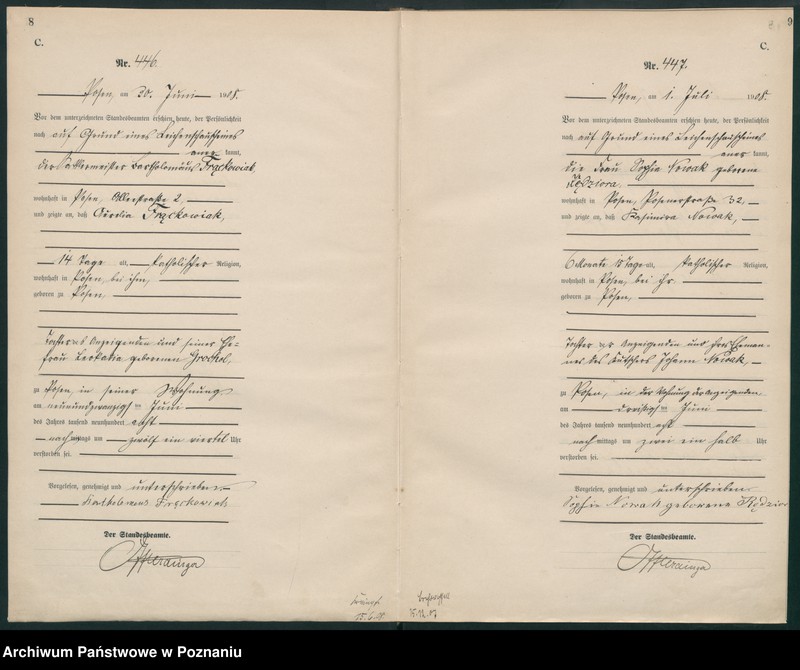 8
C.
Nr. 446.
Posen, am 30. Juni 1908.
Vor dem unterzeichneten Standesbeamten erschien heute, der Persönlichkeit
nach auf Grund eines Leichenschauscheines
aner kannt,
der Bartholomäus Frąckowiak,
wohnhaft in Posen, 2,
und zeigte an, daß Frąckowiak,
14 Tage alt, katholischer Religion,
wohnhaft in Posen, bei ihm,
geboren zu Posen,
Tochter des Anzeigenden und seiner Ehe=
frau Leokadia geborenen
zu Posen, in seiner Wohnung
am neunundzwanzigsten Juni
des Jahres tausend neunhundert acht
nach mittags um zwölf ein viertel Uhr
verstorben sei.
Vorgelesen, genehmigt und unterschrieben.
Frąckowiak
Der Standesbeamte.
9
C.
Nr. 447.
Posen, am 1. Juli 1908.
Vor dem unterzeichneten Standesbeamten erschien heute, der Persönlichkeit
nach auf Grund eines Leichenschauscheines
aner kannt,
die Frau Sophie Nowak geborene
Kędziora,
wohnhaft in Posen, Posenerstraße 32,
und zeigte an, daß Kasimira Nowak,
6 Monate 18 Tage alt, katholischer Religion,
wohnhaft in Posen, bei ihr
geboren zu Posen,
Tochter der Anzeigenden und ihres Eheman=
nes des Kutschers Johann Nowak,
zu Posen, in der Wohnung der Anzeigenden
am dreißigsten Juni
des Jahres tausend neunhundert acht
nach mittags um zwei ein halb Uhr
verstorben sei.
Vorgelesen, genehmigt und unterschrieben
Sophie Nowak geborene Kędziora
Der Standesbeamte.
Archiwum Państwowe w Poznaniu